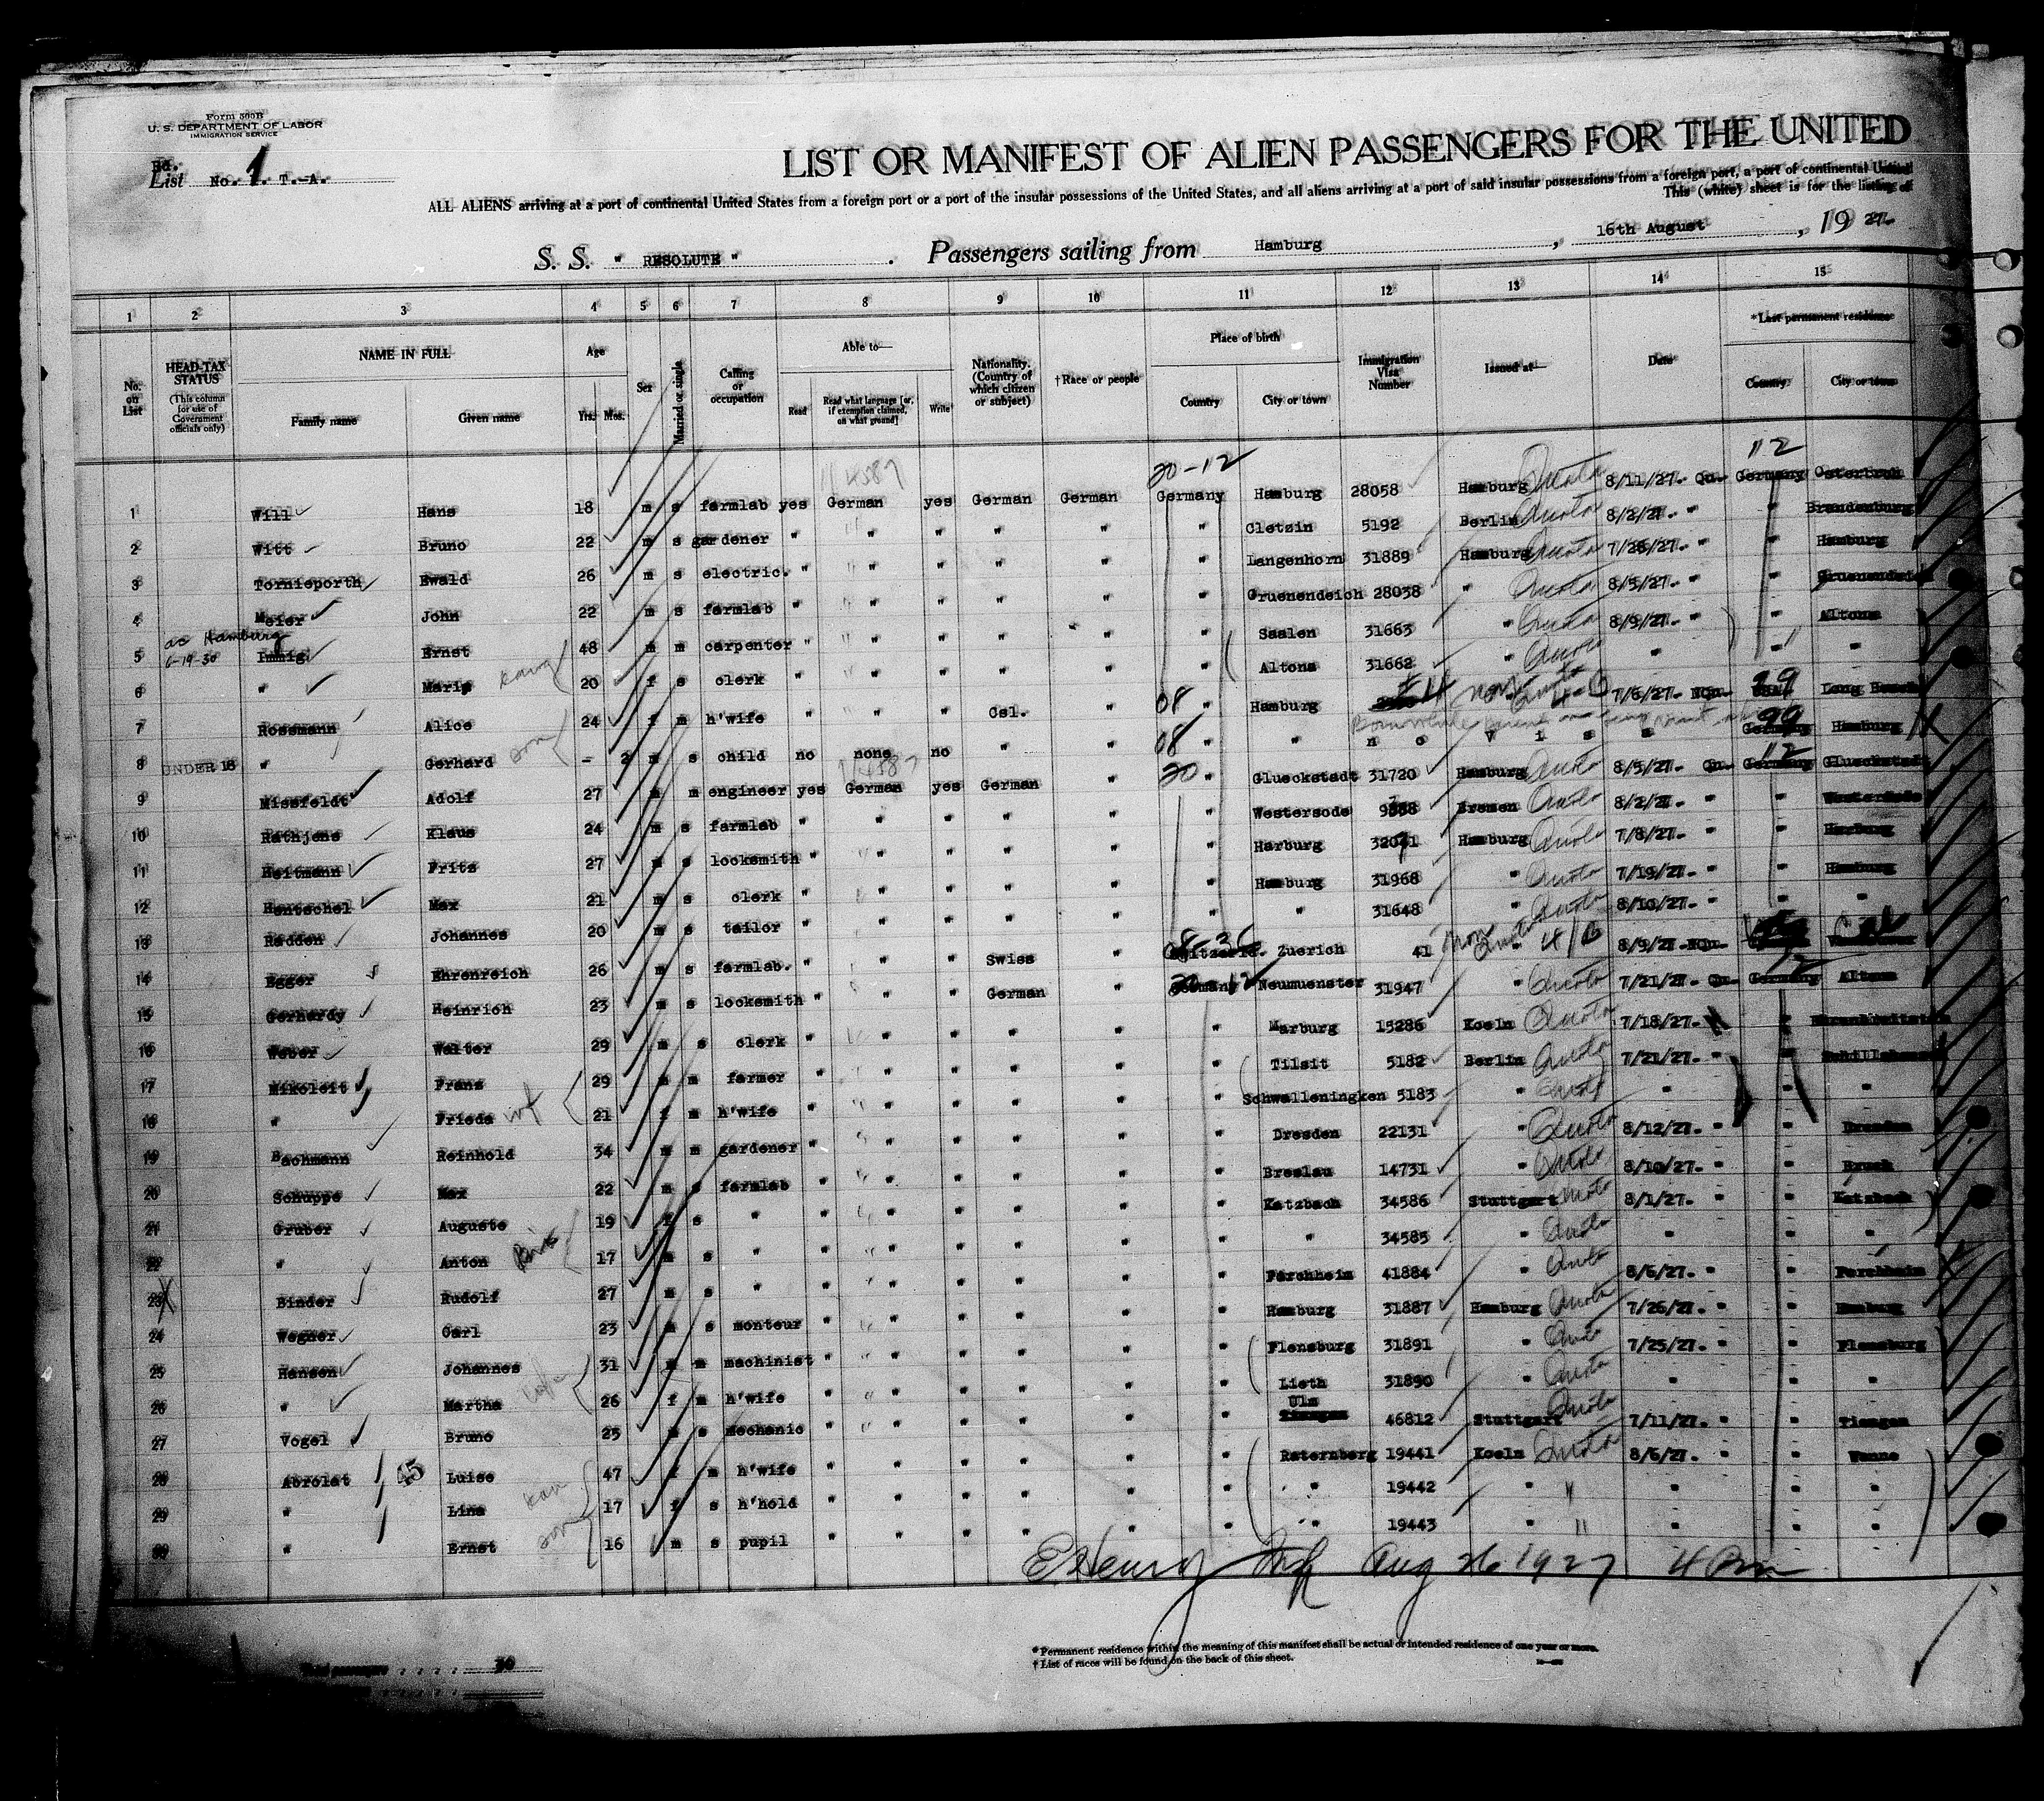 Form 500B
U. S. DEPARTMENT OF LABOR
IMMIGRATION SERVICE
Bd.
List No. 1. T.-A.
LIST OR MANIFEST OF ALIEN PASSENGERS FOR THE UNITED
ALL ALIENS arriving at a port of continental United States from a foreign port or a port of the insular possessions of the United States, and all aliens arriving at a port of said insular possessions from a foreign port, a port of continental United
This (white) sheet is for the listing of
S. S. " RESOLUTE " . Passengers sailing from Hamburg , 16th August , 19 27.
1 2 3 4 5 6 7 8 9 10 11 12 13 14 15
No. on List HEAD-TAX STATUS (This column for use of Government officials only) NAME IN FULL Family name Given name Age Yrs. Mos. Sex Married or single Calling or occupation Able to— Read Read what language [or, if exemption claimed, on what ground] Write Nationality. (Country of which citizen or subject) †Race or people Place of birth Country City or town Immigration Visa Number Issued at— Date *Last permanent residence Country City or town
20-12 112
1 Will Hans 18 m s farmlab yes German yes German German Germany Hamburg 28058 Hamburg Quota 8/11/27. Qu. Germany Osterbruch
2 Witt Bruno 22 m s gardener " " " " " " Cletzin 5192 Berlin Quota 8/2/27. " " Brandenburg
3 Tornieporth Ewald 26 m s electric. " " " " " " Langenhorn 31889 Hamburg Quota 7/26/27. " " Hamburg
4 Meier John 22 m s farmlab " " " " " " Gruenendeich 28038 " Quota 8/5/27. " " Gruenendeich
ac Hamburg 6-19-30
5 Immig Ernst 48 m m carpenter " " " " " " Saalen 31663 " Quota 8/9/27. " " Altona
6 " Marie 20 f s clerk " " " " " " Altona 31662 " Quota " " "
7 Rossmann Alice 24 f m h'wife " " " Csl. " 08 " Hamburg Non Quota 7/6/27. NQu. Long Beach
8 UNDER 16 " Gerhard son - 2 m s child no none no " " 08 " " no Visa 99 Germany Hamburg
9 Missfeldt Adolf 27 m m engineer yes German yes German " 20 " Glueckstadt 31720 Hamburg Quota 8/5/27 Qu. Germany 112 Glueckstadt
10 Rathjens Klaus 24 m s farmlab " " " " " " Westersode Bremen Quota 8/2/27. " " Westersode
11 Heitmann Fritz 27 m s locksmith " " " " " " Harburg Hamburg Quota 7/8/27. " " Harburg
12 Hentschel Max 21 m s clerk " " " " " " Hamburg 31968 " Quota 7/19/27. " " Hamburg
13 Redden Johannes 20 m s tailor " " " " " " " 31648 " Quota 8/10/27. " " "
14 Egger Ehrenreich 26 m s farmlab. " " " Swiss " Switzerld. Zuerich 41 Non Quota " 8/9/27. NQu. Cal
15 Gerhardy Heinrich 23 m s locksmith " " " German " Germany 20-12 Neumuenster 31947 " Quota 7/21/27 Qu. Germany Altona
16 Weber Walter 29 m s clerk " " " " " " Marburg 15286 Koeln Quota 7/18/27. "
17 Mikoleit Franz 29 m m farmer " " " " " " Tilsit 5182 Berlin Quota 7/21/27. " "
18 " Frieda wf 21 f m h'wife " " " " " " Schwalleningken 5183 " Quota " " "
19 Bachmann Reinhold 34 m m gardener " " " " " " Dresden 22131 " Quota 8/12/27. " " Dresden
20 Schuppe Max 22 m s farmlab " " " " " " Breslau 14731 " Quota 8/10/27. " " Bruch
21 Gruber Auguste 19 f s " " " " " " " Katzbach 34586 Stuttgart Quota 8/1/27. " " Katzbach
22 " Anton 17 m s " " " " " " " " 34585 " Quota " " " "
23 Binder Rudolf 27 m s " " " " " " " Forchheim 41884 " Quota 8/6/27. " " Forchheim
24 Wegner Carl 23 m s monteur " " " " " " Hamburg 31887 Hamburg Quota 7/26/27. " " Hamburg
25 Hansen Johannes 31 m m machinist " " " " " " Flensburg 31891 " Quota 7/25/27. " " Flensburg
26 " Martha wife 26 f m h'wife " " " " " " Lieth 31890 " Quota " " " "
27 Vogel Bruno 25 m s mechanic " " " " " " Ulm 46812 Stuttgart Quota 7/11/27. " " Tiengen
28 Abrolat 45 Luise 47 f m h'wife " " " " " " Raternberg 19441 Koeln Quota 8/6/27. " " Wanne
29 " Lina 17 f s h'hold " " " " " " " 19442 " " " " " "
30 " Ernst son 16 m s pupil " " " " " " " 19443 " " " " " "
E Henry Aug 26 1927 4 Pm
* Permanent residence within the meaning of this manifest shall be actual or intended residence of one year or more.
† List of races will be found on the back of this sheet.
Total passengers . . . . . 30